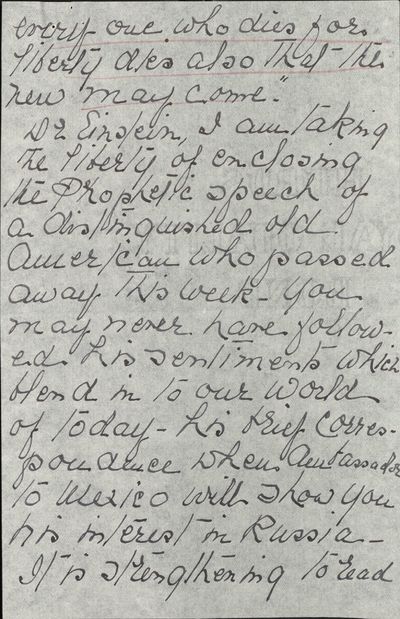 every one who dies for
liberty dies also that the
new may come."
Dr Einstein, I am taking
the liberty of enclosing
the Prophetic speech of
a distinguished old
American who passed
away this week - You
may never have follow-
ed his sentiments which
blend in to our world
of today - his brief corres-
pondence when Ambassador
to Mexico will show you
his interest in Russia -
It is strengthening to read